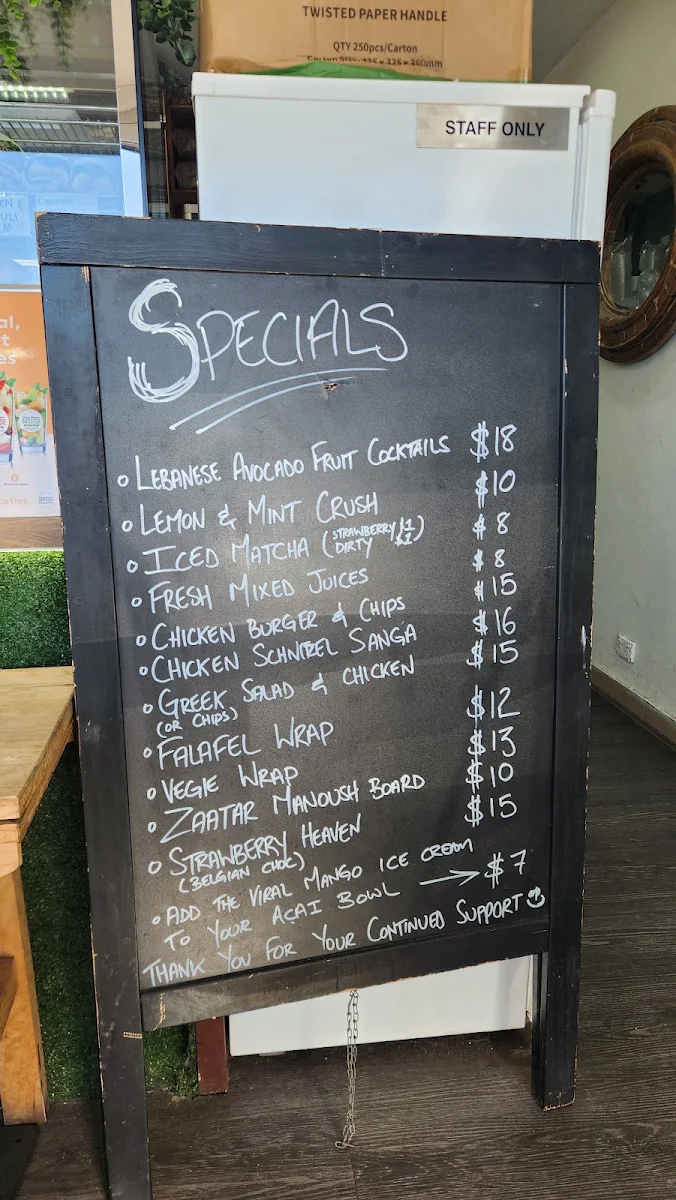 TWISTED PAPER HANDLE
QTY 250pcs/Carton
STAFF ONLY
SPECIALS
LEBANESE AVOCADO FRUIT COCKTAILS $18
LEMON & MINT CRUSH $10
ICED MATCHA (STRAWBERRY $1 $8
DIRTY $1)
FRESH MIXED JUICES $8
CHICKEN BURGER & CHIPS $15
CHICKEN SCHNITZEL SANGA $16
GREEK SALAD & CHICKEN $15
(OR CHIPS)
FALAFEL WRAP $12
VEGIE WRAP $13
ZAATAR MANOUSH BOARD $10
STRAWBERRY HEAVEN $15
(BELGIAN CHOC)
ADD THE VIRAL MANGO ICE CREAM
TO YOUR ACAI BOWL → $7
THANK YOU FOR YOUR CONTINUED SUPPORT